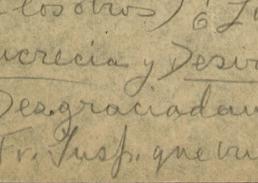 los otros) ó L
ucrecia y Des
Desgraciada
Fr. Insp. que vu